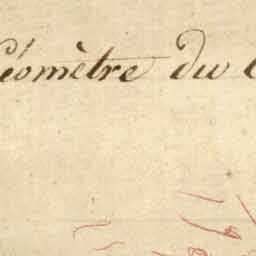 Géomètre du C